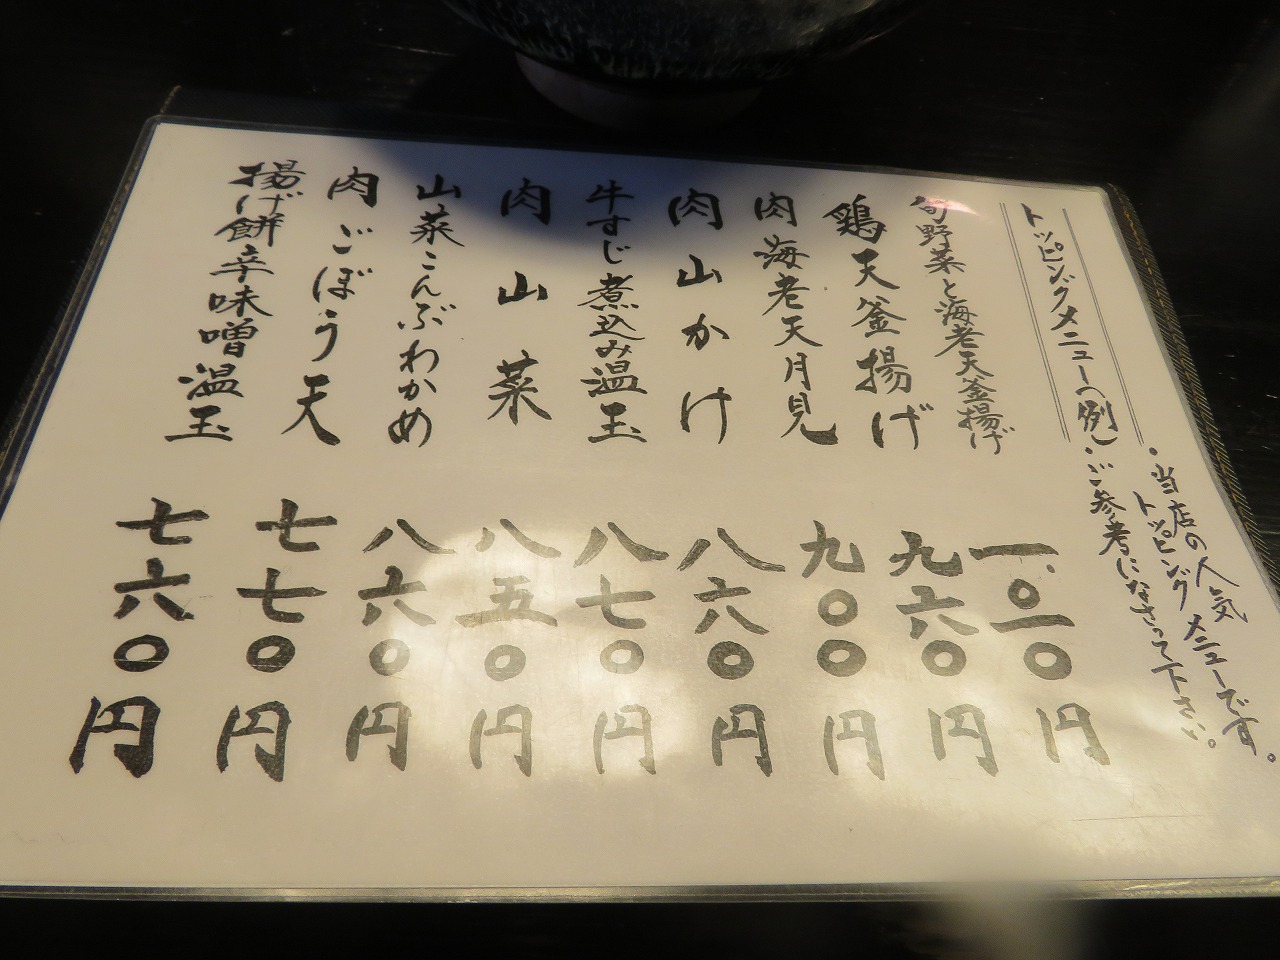 トッピングメニュー(例)
・当店の人気
トッピングメニューです。
・ご参考になさって下さい。
旬野菜と海老天釜揚げ 一〇一〇円
鶏天釜揚げ 九六〇円
肉海老天月見 九〇〇円
肉山かけ 八六〇円
牛すじ煮込み温玉 八七〇円
肉山菜 八五〇円
山菜こんぶわかめ 八六〇円
肉ごぼう天 七七〇円
揚げ餅辛味噌温玉 七六〇円